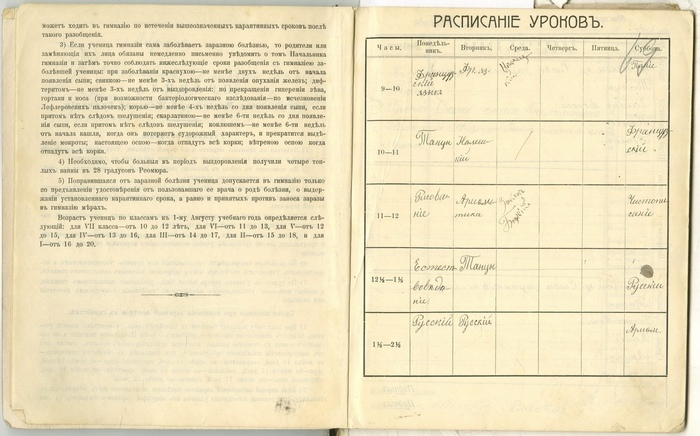 можетъ ходить въ гимназію по истеченіи вышеозначенныхъ карантинныхъ сроковъ послѣ
такого разобщенія.
3) Если ученица гимназіи сама заболѣваетъ заразною болѣзнью, то родители или
замѣняющія ихъ лица обязаны немедленно письменно увѣдомить о томъ Начальника
гимназіи и затѣмъ точно соблюдать нижеслѣдующіе сроки разобщенія съ гимназіею за-
болѣвшей ученицы: при заболѣваніи краснухою—не менѣе двухъ недѣль отъ начала
появленія сыпи; свинкою—не менѣе 3-хъ недѣль отъ появленія опухоли железъ; диф-
теритомъ—не менѣе 3-хъ недѣль отъ выздоровленія: по прекращеніи гиперемія зѣва,
гортани и носа (при возможности бактеріологическаго изслѣдованія—по исчезновеніи
Лефлеровскихъ палочекъ); корью—не менѣе 4-хъ недѣль со дня появленія сыпи, если
притомъ нѣтъ слѣдовъ шелушенія; скарлатиною—не менѣе 6-ти недѣль со дня появле-
нія сыпи, если притомъ нѣтъ слѣдовъ шелушенія; коклюшемъ—не менѣе 6-ти недѣль
отъ начала кашля, когда онъ потерялъ судорожный характеръ, и прекратится выдѣ-
леніе мокроты; настоящею оспою—когда отпадутъ всѣ корки; вѣтреною оспою когда
отпадутъ всѣ корки.
4) Необходимо, чтобы больныя въ періодъ выздоровленія получили четыре теп-
лыхъ ванны въ 28 градусовъ Реомюра.
5) Поправившаяся отъ заразной болѣзни ученица допускается въ гимназію только
по предъявленіи удостовѣренія отъ пользовавшаго ея врача о родѣ болѣзни, о выдер-
жаніи установленнаго карантиннаго срока, а равно и принятыхъ противъ заноса заразы
въ гимназію мѣрахъ.
Возрастъ ученицъ по классамъ къ 1-му Августу учебнаго года опредѣляется слѣ-
дующій: для VII класса—отъ 10 до 12 лѣтъ, для VI—отъ 11 до 13, для V—отъ 12
до 15, для IV—отъ 13 до 16, для III—отъ 14 до 17, для II—отъ 15 до 18, и для
I—отъ 16 до 20.
РАСПИСАНІЕ УРОКОВЪ.
Часы. Понедѣль-никъ. Вторникъ. Среда. Четвергъ. Пятница. Суббота.
9—10 Француз-скій языкъ Пѣніе
10—11 Танцы Француз-скій
11—12 Рисова-ніе Ариѳме-тика Чистопи-саніе
12½—1½ Естест-вовѣдѣ-ніе Танцы Русскій
1½—2½ Русскій Русскій Ариѳм.